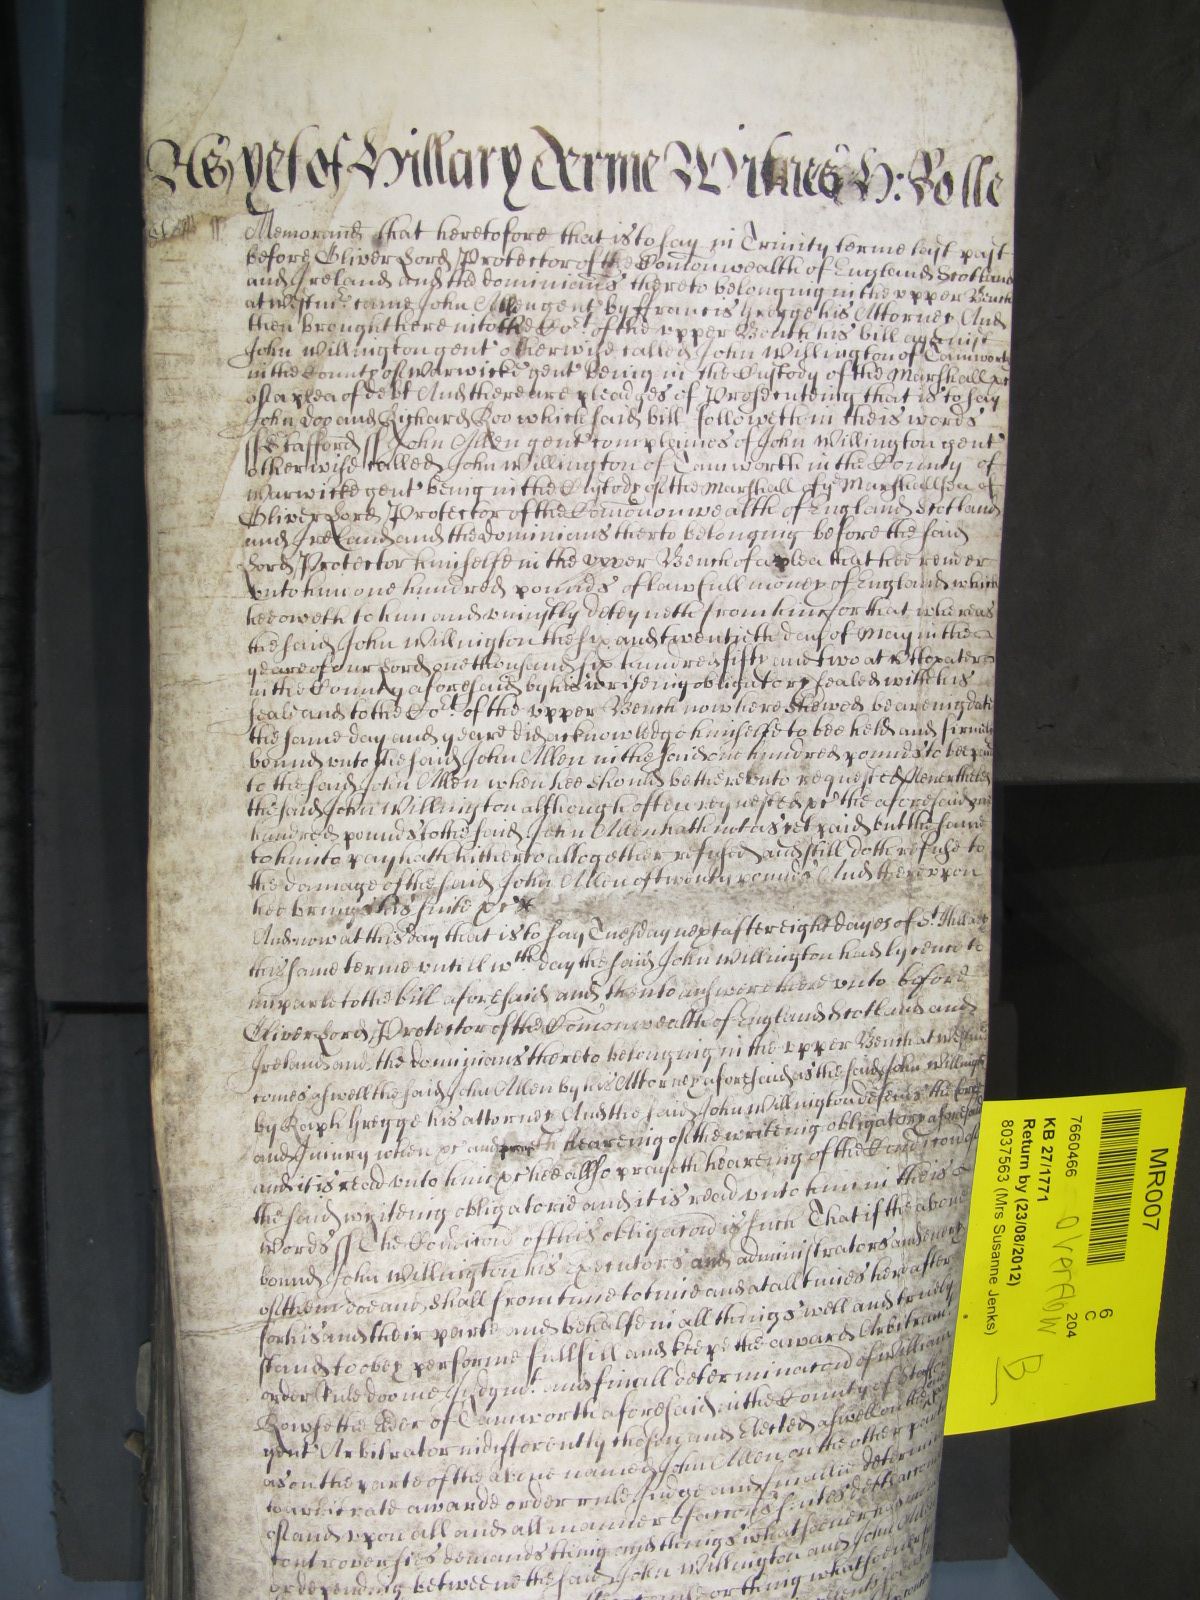 As yet of Hillary Terme Witnes H: Rolle
Memorand that heretofore that is to say in Trinity terme last past
before Oliver Lord Protector of the Comonwealth of England Scotland
and Ireland and the dominions thereto belonging in the upper Bench
at Westmr came John Allen gent by Francis George his Attorney And
then brought here into the Cort of the upper Bench his bill against
John Willington gent otherwise called John Willington of Tamworth
in the County of Warwicke gent being in the Custody of the Marshall &c
of a plea of debt And there are pleadges of Prosecuteing that is to say
John Doo and Richard Roo which said bill followeth in theis words
ss Stafford ss John Allen gent complaines of John Willington gent
otherwise called John Willington of Tamworth in the County of
Warwicke gent being in the Custody of the Marshall of ye Marshallsea of
Oliver Lord Protector of the Comonwealth of England Scotland
and Ireland and the dominions therto belonging before the said
Lord Protector himselfe in the upper Bench of a plea that hee render
unto him one hundred pounds of lawfull money of England which
hee oweth to him and uniustly deteyneth from him for that whereas
the said John Willington the six and twentieth day of May in the
yeare of our Lord one thousand six hundred fifty and two at
in the County aforesaid by his writeing obligatory sealed with his
seale and to the Cort of the upper Bench now here shewed beareing date
the same day and yeare did acknowledge himselfe to bee held and firmely
bound unto the said John Allen in the said one hundred pounds to bee paid
to the said John Allen when hee should be thereunto requested Neverthelesse
the said John Willington although often requested &c the aforesaid one
hundred pounds to the said John Allen hath not as yet paid but the same
to him to pay hath hitherto altogether refused and still doth refuse to
the damage of the said John Allen of twenty pounds And thereupon
hee brings his suite &c
And now at this day that is to say Tuesday next after eight dayes of St Hillary
this same terme untill wch day the said John Willington had lycence to
imparle to the bill aforesaid and then to answere thereunto before
Oliver Lord Protector of the Comonwealth of England Scotland and
Ireland and the dominions thereto belonging in the upper Bench at Westmr
comes aswell the said John Allen by his Attorney aforesaid as the said John Willington
by Ralph Gregge his attorney And the said John Willington defends the force
and Iniury when &c and prayeth heareing of the writeing obligatory aforesaid
and it is read unto him &c hee allso prayeth heareing of the Condicon of
the said writeing obligatorie and it is read unto him in theis
words ss The Condicon of this obligacon is such That if the above
bound John Willington his executors and administrators and every
of them doe and shall from time to time and at all times hereafter
for his and their parte and behalfe in all things well and truely
stand to obey performe fullfill and keepe the award Arbitramt
order Rule doome Judgmt and finall determinacon of William
Rowse the elder of Tamworth aforesaid in the County of Stafford
gent Arbitrator indifferently chosen and elected aswell on the
as on the parte of the above named John Allen on the other parte
to arbitrate awarde order rule Judge and finallie determine
of and upon all and all manner of accons suites debts
controversies demands thing and things whatsoever
or depending betweene the said John Willington and John Allen
or thing whatsoever
MR007
6
C
204
7660466
KB 27/1771
Return by (23/08/2012)
8037563 (Mrs Susanne Jenks)
Overflow
B